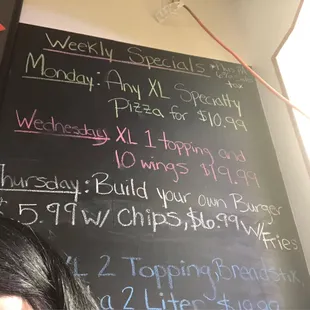 Weekly Specials
Monday: Any XL Specialty
Pizza for $10.99
Wednesday XL 1 topping and
10 wings $19.99
hursday: Build your own Burger
5.99 w/ chips, $6.99 w/ Fries
XL 2 Topping, Breadstix,
a 2 Liter $19.99